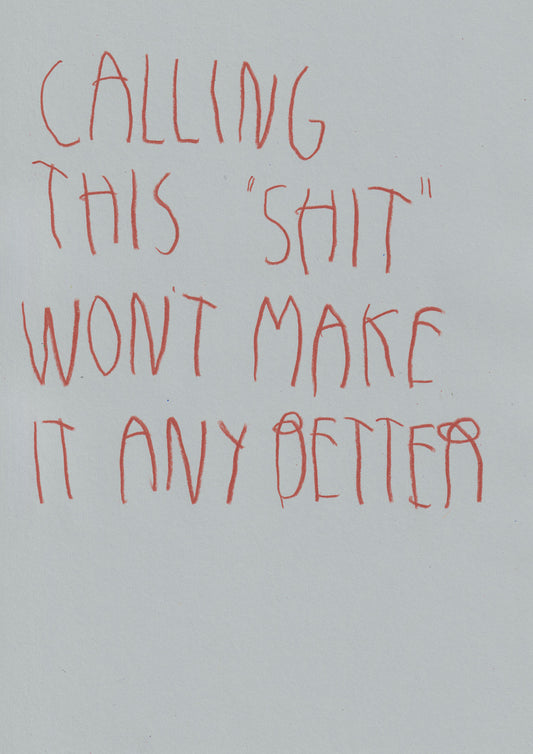 CALLING
THIS "SHIT"
WON'T MAKE
IT ANY BETTER